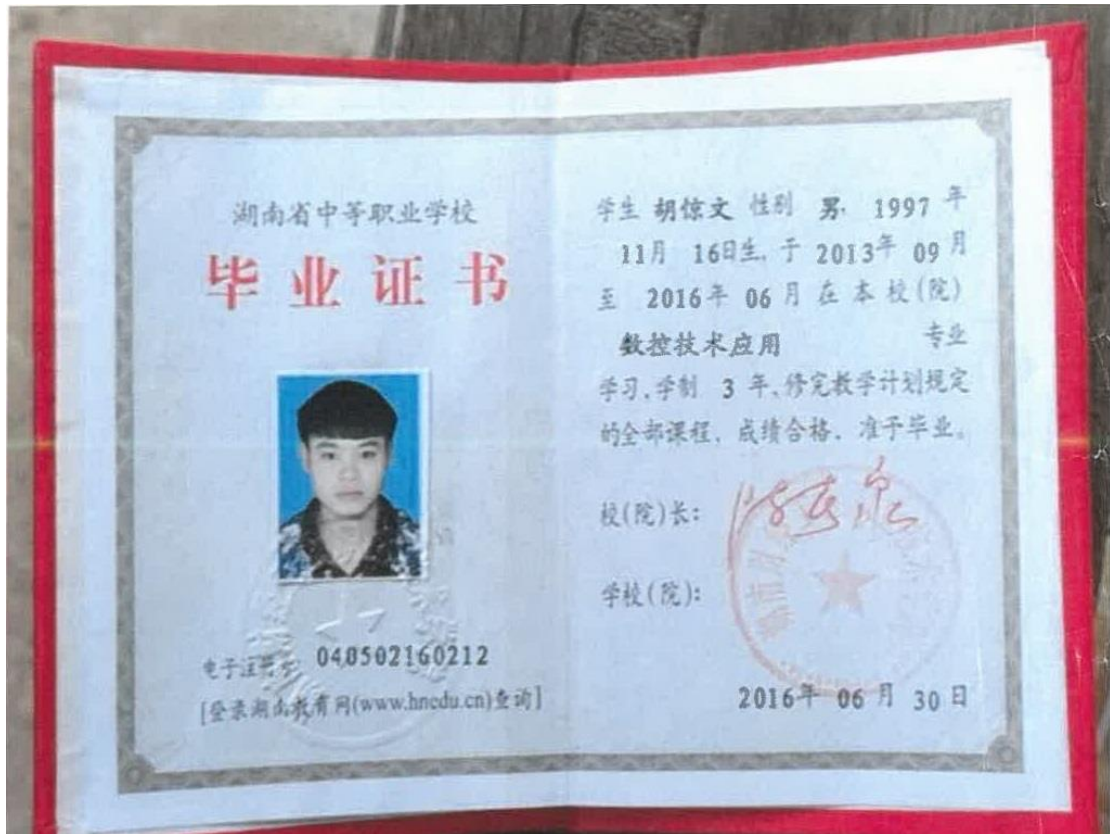 湖南省中等职业学校
毕业证书
电子注册号: 040502160212
[登录湖南教育网(www.hnedu.cn)查询]
学生 胡惊文 性别 男, 1997 年
11月 16日生, 于 2013年 09 月
至 2016年 06 月 在 本 校(院)
数控技术应用 专业
学习, 学制 3 年, 修完教学计划规定
的全部课程, 成绩合格, 准予毕业。
校(院)长:
学校(院):
2016年 06 月 30 日